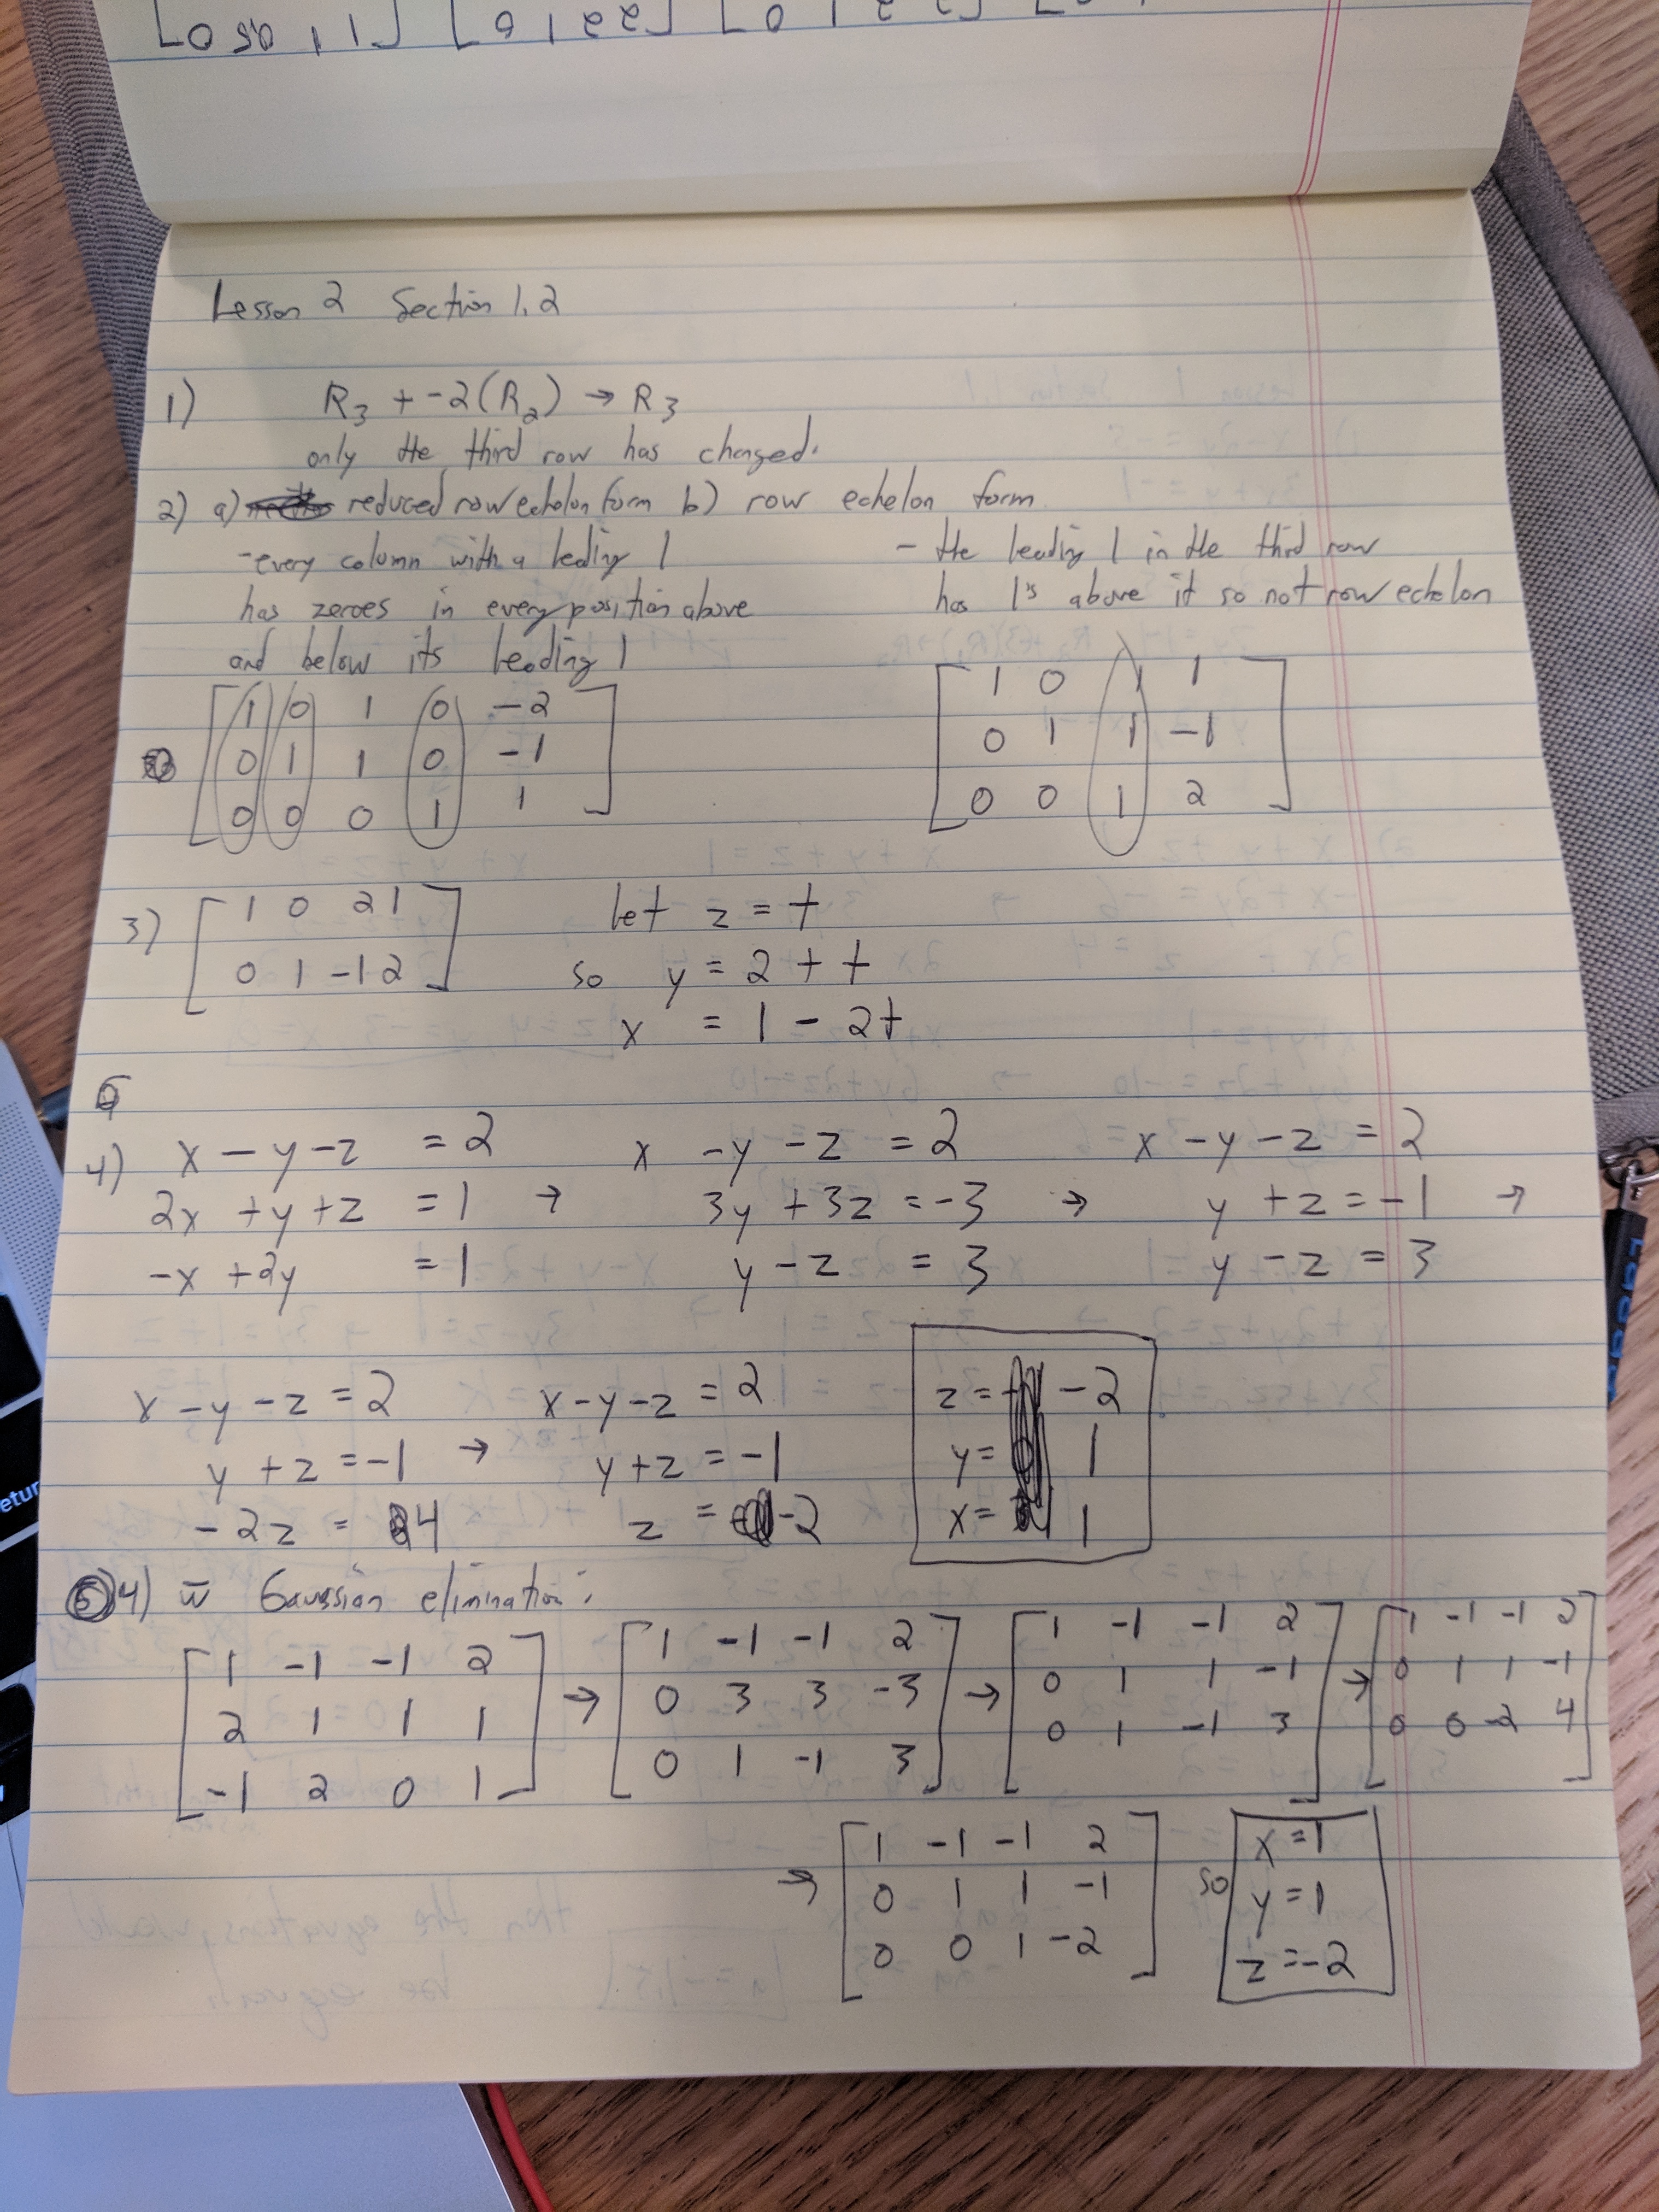 Lesson 2 Section 1.2
1) R3 + -2(R2) → R3
only the third row has changed.
2) a) reduced row echelon form b) row echelon form
- every column with a leading 1
has zeroes in every position above
and below its leading 1
- the leading 1 in the third row
has 1's above it so not row echelon
[1 0 1 0 -2
0 1 1 0 -1
0 0 0 1 1]
[1 0 1 1
0 1 1 -1
0 0 1 2]
3) [1 0 2 1
0 1 -1 2]
let z = t
so y = 2 + t
x = 1 - 2t
4) x - y - z = 2
2x + y + z = 1 →
-x + 2y = 1
x - y - z = 2
3y + 3z = -3 →
y - z = 3
x - y - z = 2
y + z = -1 →
y - z = 3
x - y - z = 2
y + z = -1 →
-2z = 4
x - y - z = 2
y + z = -1
z = -2
z = -2
y = 1
x = 1
4) w̄ Gaussian elimination:
[1 -1 -1 2
2 1 1 1
-1 2 0 1]
→ [1 -1 -1 2
0 3 3 -3
0 1 -1 3]
→ [1 -1 -1 2
0 1 1 -1
0 1 -1 3]
→ [1 -1 -1 2
0 1 1 -1
0 0 -2 4]
→ [1 -1 -1 2
0 1 1 -1
0 0 1 -2]
so x = 1
y = 1
z = -2